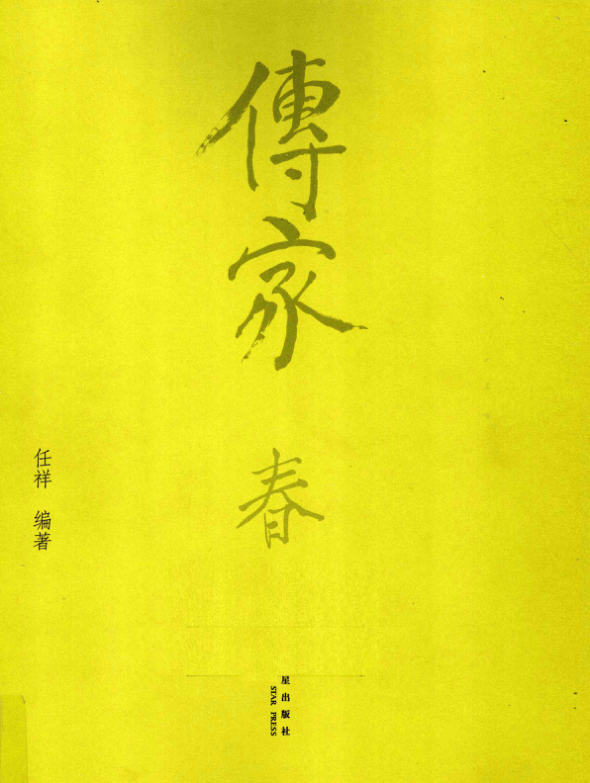 傳家
春
任祥 编著
星出版社
STAR PRESS